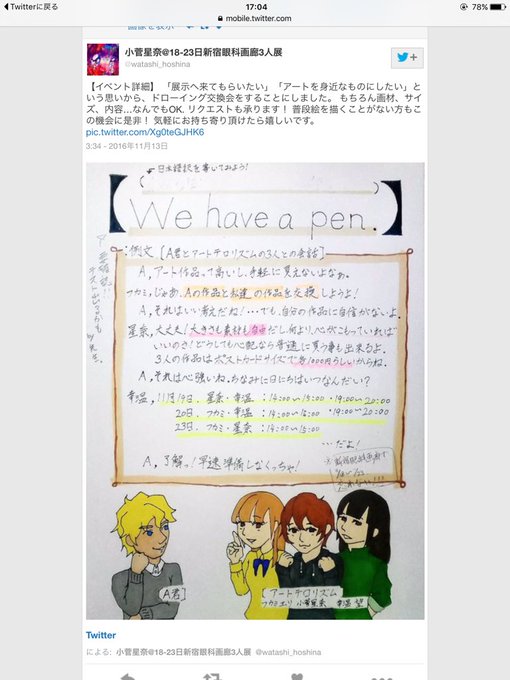 Twitterに戻る
17:04
78%
mobile.twitter.com
画像を表示
小菅星奈@18-23日新宿眼科画廊3人展
@watashi_hoshina
【イベント詳細】 「展示へ来てもらいたい」「アートを身近なものにしたい」と
いう思いから、ドローイング交換会をすることにしました。 もちろん画材、サイ
ズ、内容...なんでもOK. リクエストも承ります！ 普段絵を描くことがない方もこ
の機会に是非！ 気軽にお持ち寄り頂けたら嬉しいです。
pic.twitter.com/Xg0teGJHK6
3:34 - 2016年11月13日
日本語訳を書いておよう!
【We have a pen.】
例文【A君とアートテロリズムの3人との会話】
A, アート作品、って高いし、手軽に買えないよなぁ。
フカミ, じゃあ、Aの作品と私達の作品を交換しようよ!
A, それはいい考えだね!…でも、自分の作品に自信がないよ。
星奈, 大丈夫! 大きさも素材も自由だし何より、心がこもっていれば
いいのさ! どうしても心配なら普通に買う事も出来るよ。
3人の作品はポストカードサイズで各1000円らしいからね。
A, それは心強いね。ちなみに日にちはいつなんだい?
幸温, 11月19日. 星奈・幸温 : 14:00〜15:00 ・19:00〜20:00
20日. フカミ・幸温 : 14:00〜15:00 ・19:00〜20:00
23日. フカミ・星奈 : 14:00〜15:00
…だよ!
A, 了解っ! 早速準備しなくっちゃ!
【A君】
【アートテロリズム】
フカミエリ 小菅星奈 幸温 望
Twitter
による: 小菅星奈@18-23日新宿眼科画廊3人展 @watashi_hoshina